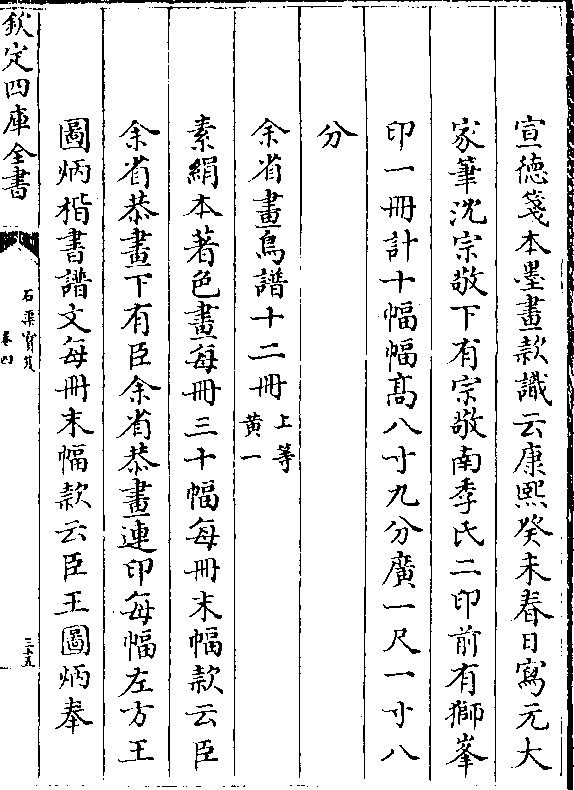 宣德箋本墨畫款識云康熙癸未春日寫元大
家筆沈宗敬下有宗敬南季氏二印前有獅峯
印一冊計十幅幅高八寸九分廣一尺一寸八
分
余省畫鳥譜十二冊 上等
黃一
素絹本著色畫每冊三十幅每冊末幅款云臣
余省恭畫下有臣余省恭畫連印每幅左方王
圖炳楷書譜文每冊末幅款云臣王圖炳奉
欽定四庫全書
石渠寶笈
卷四
三十五